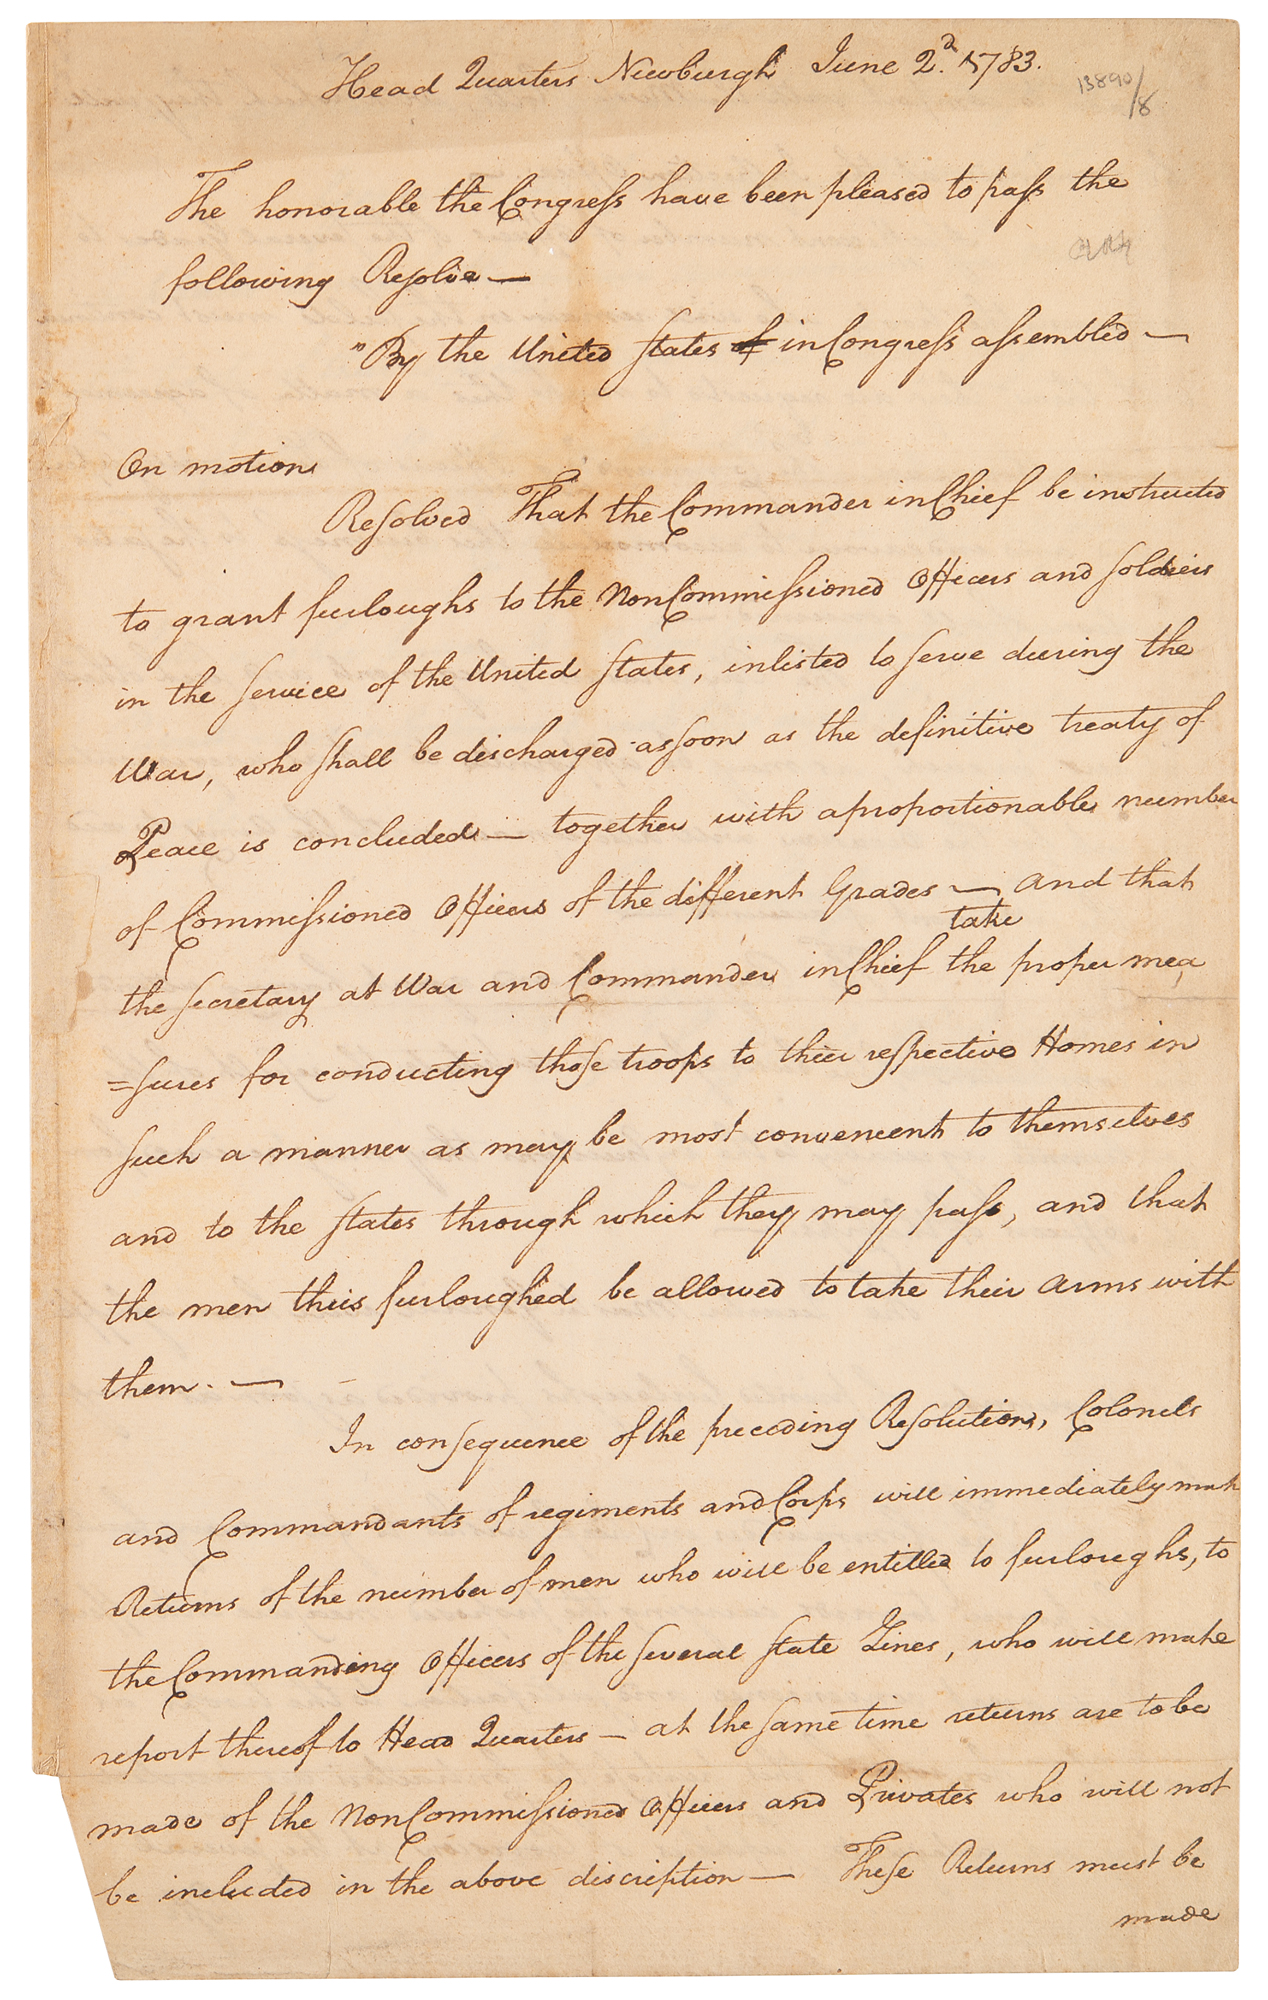 Head Quarters Newburgh June 2.d 1783.
13890/8
The honorable the Congress have been pleased to pass the
following Resolve —
"By the United States of in Congress assembled —
On motion
Resolved That the Commander in Chief be instructed
to grant furloughs to the Non Commissioned Officers and soldiers
in the service of the United States, inlisted to serve during the
War, who shall be discharged as soon as the definitive treaty of
Peace is concluded — together with a proportionable number
of Commissioned Officers of the different Grades — and that
take
the secretary at War and Commander in Chief the proper mea
=sures for conducting those troops to their respective Homes in
such a manner as may be most convenient to themselves
and to the states through which they may pass, and that
the men thus furloughed be allowed to take their arms with
them. —
In consequence of the preceding Resolution, Colonels
and Commandants of regiments and Corps will immediately make
Returns of the number of men who will be entitled to furloughs, to
the Commanding Officers of the several state Lines, who will make
report thereof to Head Quarters — at the same time returns are to be
made of the Non Commissioned Officers and Privates who will not
be included in the above discription — These Returns must be
made